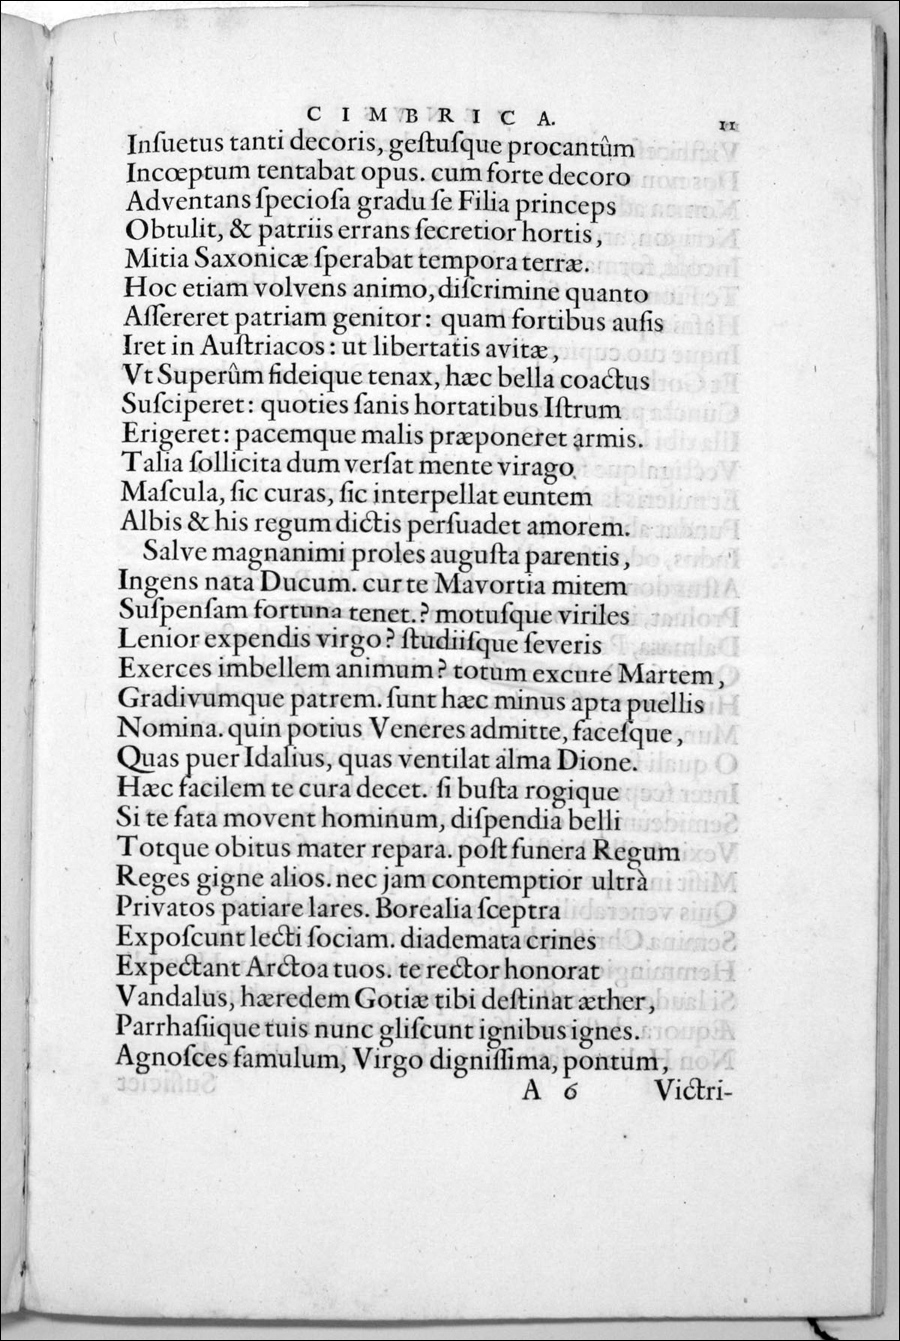 CIMBRICA. 11
Inſuetus tanti decoris, geſtuſque procantûm
Incœptum tentabat opus. cum forte decoro
Adventans ſpecioſa gradu ſe Filia princeps
Obtulit, & patriis errans ſecretior hortis,
Mitia Saxonicæ ſperabat tempora terræ.
Hoc etiam volvens animo, diſcrimine quanto
Aſſereret patriam genitor: quam fortibus auſis
Iret in Auſtriacos: ut libertatis avitæ,
Vt Superûm fideique tenax, hæc bella coactus
Suſciperet: quoties ſanis hortatibus Iſtrum
Erigeret: pacemque malis præponeret armis.
Talia ſollicita dum verſat mente virago
Maſcula, ſic curas, ſic interpellat euntem
Albis & his regum dictis perſuadet amorem.
Salve magnanimi proles auguſta parentis,
Ingens nata Ducum. cur te Mavortia mitem
Suſpenſam fortuna tenet.? motuſque viriles
Lenior expendis virgo? ſtudiiſque ſeveris
Exerces imbellem animum? totum excute Martem,
Gradivumque patrem. ſunt hæc minus apta puellis
Nomina. quin potius Veneres admitte, faceſque,
Quas puer Idalius, quas ventilat alma Dione.
Hæc facilem te cura decet. ſi buſta rogique
Si te fata movent hominum, diſpendia belli
Totque obitus mater repara. poſt funera Regum
Reges gigne alios. nec jam contemptior ultrà
Privatos patiare lares. Borealia ſceptra
Expoſcunt lecti ſociam. diademata crines
Expectant Arctoa tuos. te rector honorat
Vandalus, hæredem Gotiæ tibi deſtinat æther,
Parrhaſiique tuis nunc gliſcunt ignibus ignes.
Agnoſces famulum, Virgo digniſſima, pontum,
A 6 Victri-